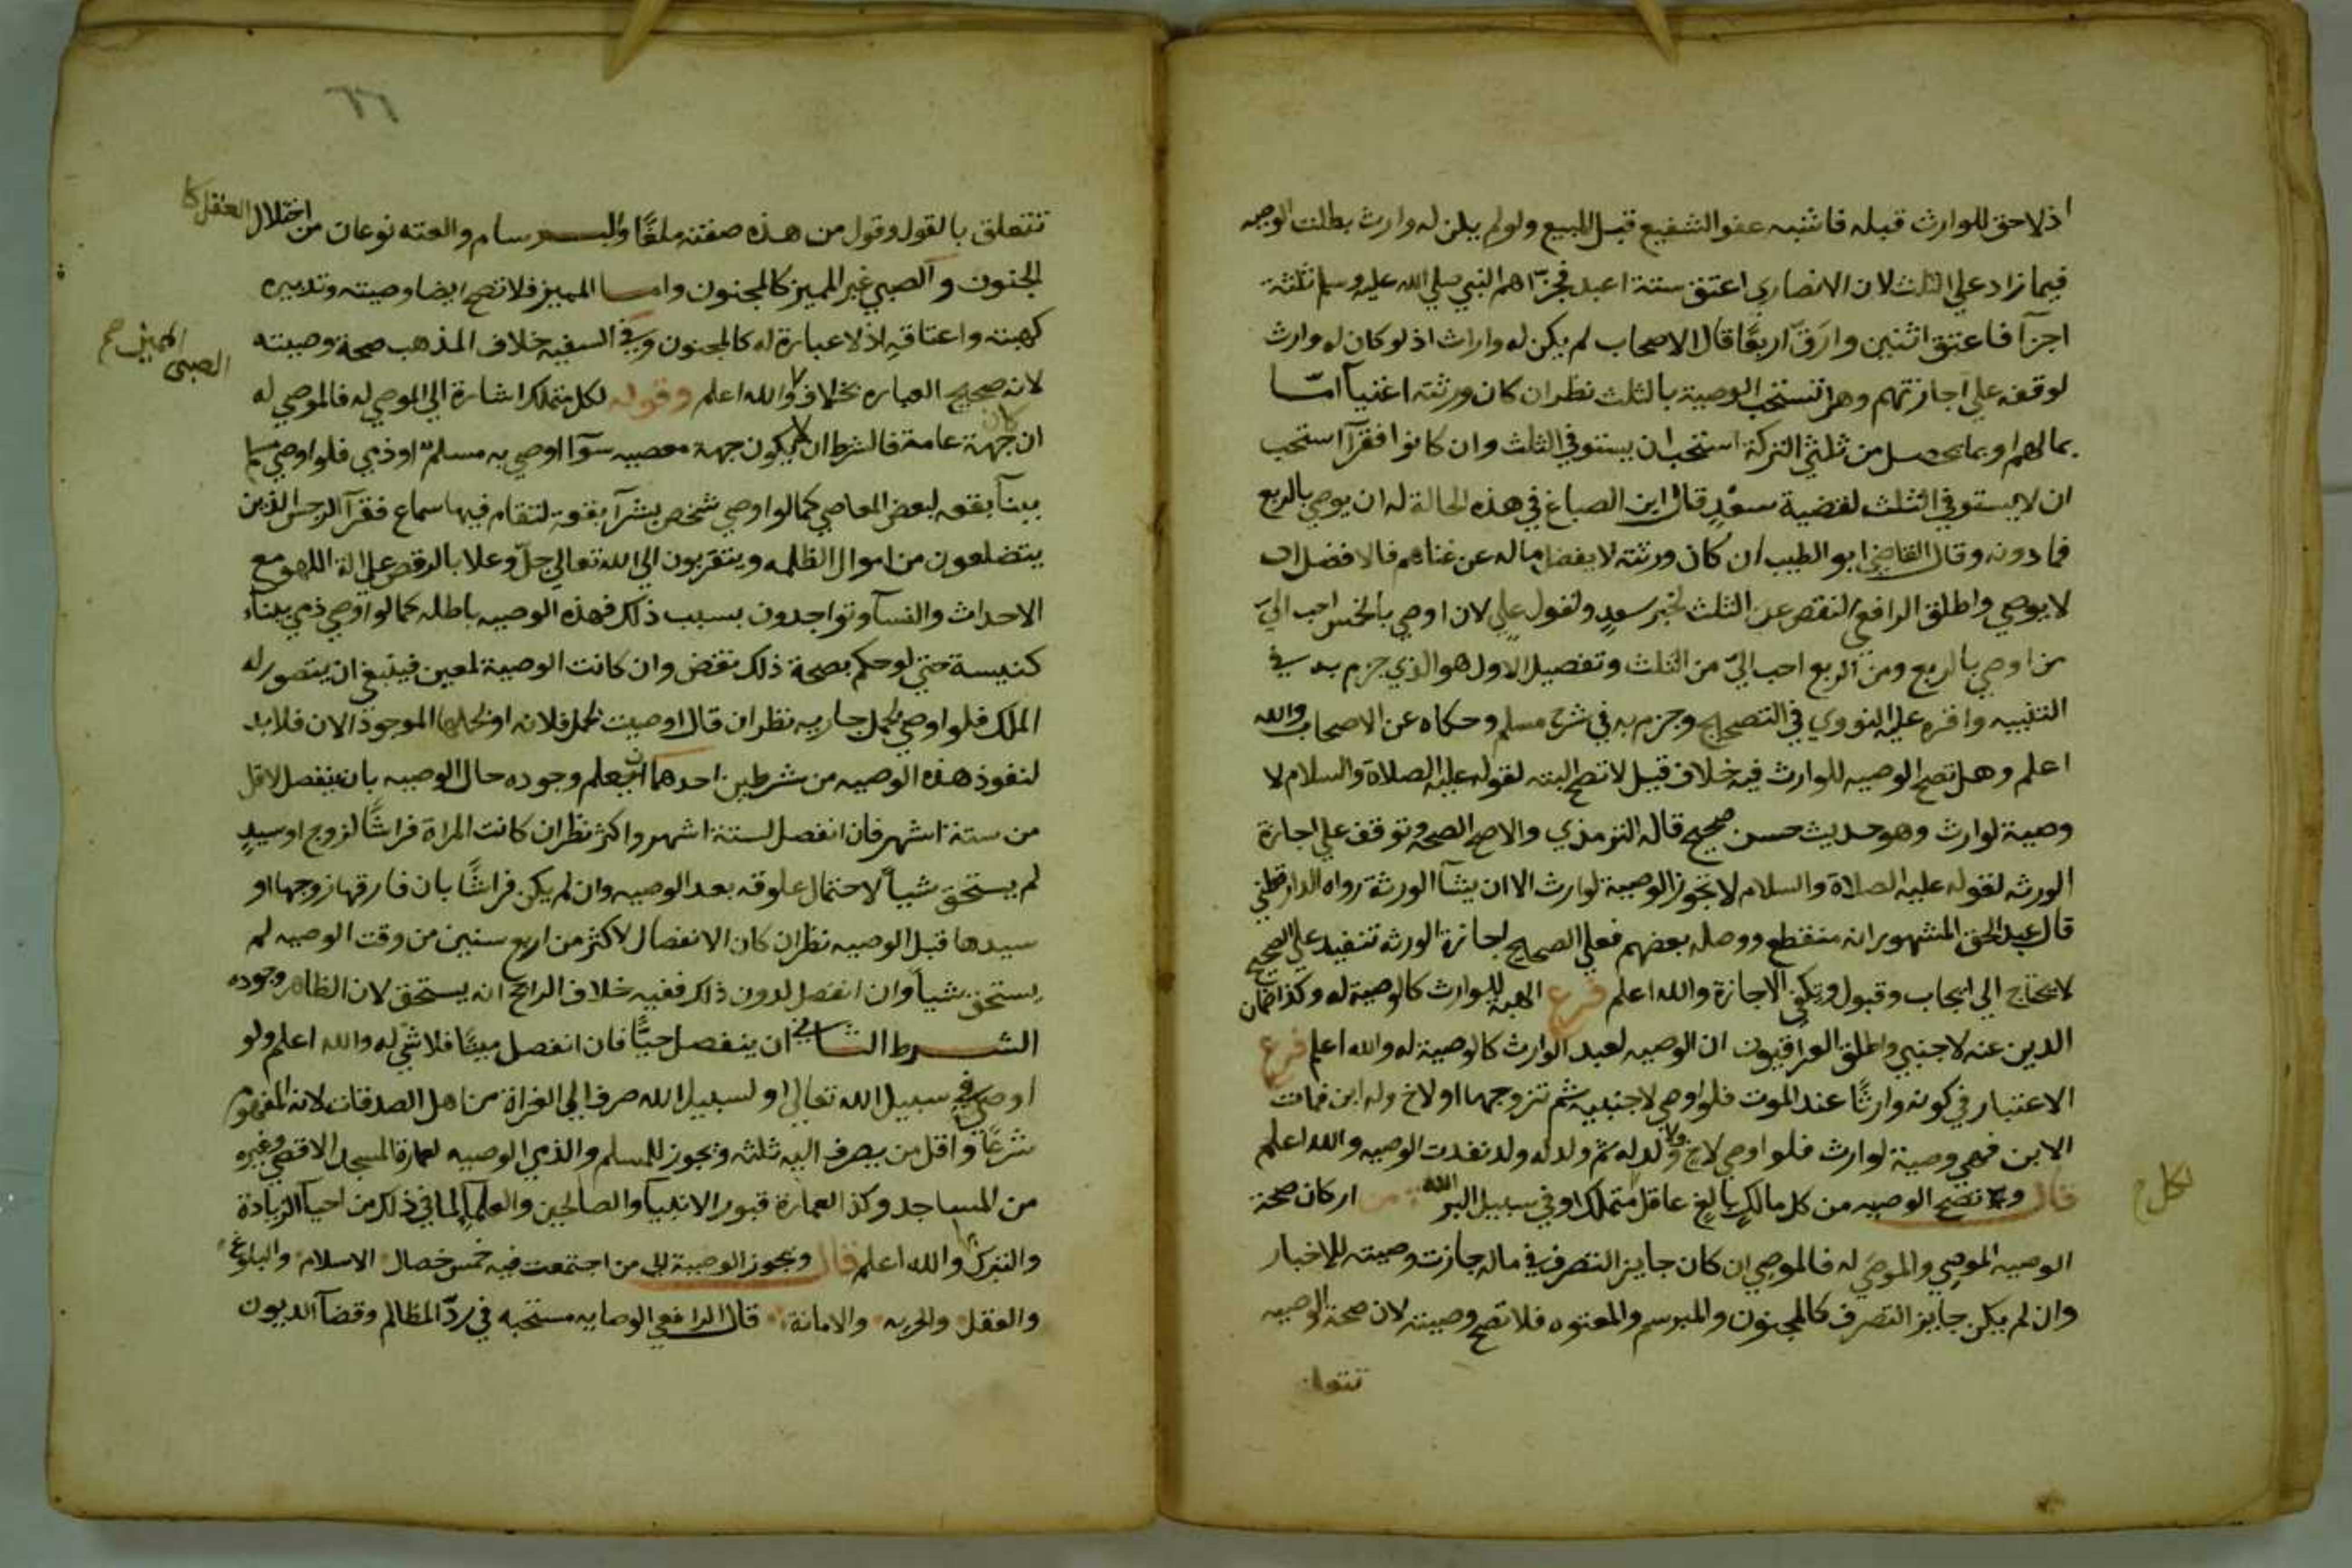 اذ لا حق للوارث قبله فاشبه عفو الشفيع قبل البيع ولو لم يكن له وارث بطلت الوصيه
فيما زاد علي الثلث لان الانصاري اعتق ستة اعبد فجزّاهم النبي صلي الله عليه وسلم ثلثة
اجزآ فاعتق اثنين وارَقّ اربعًا قال الاصحاب لم يكن له واراث اذ لو كان له وارث
لوقفه علي اجازتهم وهل تستحب الوصية بالثلث نظر ان كان ورثته اغنيآ امّا
بمالهم او بما يحصل من ثلثي التركة استحب ان يستوفي الثلث وان كانوا فقرآ استحب
ان لا يستوفي الثلث لقضية سعدٍ قال ابن الصباغ في هذه الحالة له ان يوصي بالربع
فما دونه وقال القاضي ابو الطيب ان كان ورثته لا يفضل ماله عن غناهم فالافضل ان
لا يوصي واطلق الرافعي النقص عن الثلث لخبر سعدٍ ولقول علي لان اوصي بالخمس احب اليّ
من اوصي بالربع ومن الربع احب اليّ من الثلث وتفصيل الاول هو الذي جزم به في
التنبيه واقره عليه النووي في التصحيح وجزم به في شرح مسلم وحكاه عن الاصحاب والله
اعلم وهل تصح الوصيه للوارث فيه خلاف قيل لا تصح البته لقوله عليه الصلاة والسلام لا
وصية لوارث وهو حديث حسن صحيح قاله الترمذي والاصح الصحه وتوقف علي اجازة
الورثه لقوله عليه الصلاة والسلام لا تجوز الوصية لوارث الا ان يشآ الورثة رواه الدارقطني
قال عبد الحق المشهور انه منقطع ووصله بعضهم فعلي الصحيح اجازة الورثه تنفيد علي الصحيح
لا يحتاج الي ايجاب وقبول وتكفي الاجازة والله اعلم فرع الهبه للوارث كالوصية له وكذا ضمان
الدين عنه لاجنبي واطلق العراقيون ان الوصيه لعبد الوارث كالوصية له والله اعلم فرع
الاعتبار في كونه وارثًا عند الموت فلو اوصي لاجنبيه ثم تزوجها او لاخ وله ابن فمات
الابن فهي وصية لوارث فلو اوصي لاخ ولا ولد له ثم ولد له ولد نفدت الوصيه والله اعلم
قال وتصح الوصيه من كل مالكٍ بالغٍ عاقل متملك او في سبيل البر الله من اركان صحة
لكل
الوصيه الموصِي والموصَي له فالموصِي ان كان جايز التصرف في ماله جازت وصيته للاخبار
وان لم يكن جايز التصرف كالمجنون والمبرسم والمعتوه فلا تصح وصيته لان صحة الوصيه
٦٦
تتعلق بالقول وقول من هذه صفته ملغًا والبرسام والعته نوعان من اختلال العقل كا
لجنون والصبي غير المميز كالمجنون واما المميز فلا تصح ايضا وصيته وتدبيره
كهبته واعتاقه اذ لا عبارة له كالمجنون وفي السفيه خلاف المذهب صحة وصيته
الصبي المميز صح
لانه صحيح العباره بخلاف والله اعلم وقوله لكل متملك اشارة الي الموصي له فالموصي له
ان كان جهة عامة فالشرط ان لا يكون جهة معصيه سوآ اوصي به مسلم او ذمي فلو اوصي مسلم
ببنآ بقعه لبعض المعاصي كما لو اوصي شخص بشرآ بقعة لتقام فيها سماع فقرآ الرجس الذين
يتضلعون من اموال الظلمه ويتقربون الي الله تعالي جلّ وعلا بالرقص علي الة اللهو مع
الاحداث والنسآ وتواجدون بسبب ذلك فهذه الوصيه باطله كما لو اوصي ذمي ببنآء
كنيسة حتي لو حكم بصحة ذلك نقض وان كانت الوصية لمعين فينبغي ان يتصور له
الملك فلو اوصي لحمل جاريه نظر ان قال اوصيت لحمل فلانه او لحملها الموجود الان فلا بد
لنفوذ هذه الوصيه من شرطين احدهما ان يعلم وجوده حال الوصيه بان ينفصل لاقل
من ستة اشهر فان انفصل لستة اشهر واكثر نظر ان كانت المراة فراشًا لزوج او سيدٍ
لم يستحق شيأ لاحتمال علوقه بعد الوصيه وان لم يكن فراشًا بان فارقها زوجها او
سيدها قبل الوصيه نظر ان كان الانفصال لاكثر من اربع سنين من وقت الوصيه لم
يستحق شيأ وان انفصل لدون ذلك ففيه خلاف الراجح انه يستحق لان الظاهر وجوده
الشرط الثاني ان ينفصل حيًّا فان انفصل ميتًا فلا شي له والله اعلم ولو
اوصي في سبيل الله تعالي او لسبيل الله صرف الي الغزاة من اهل الصدقات لانه المفهوم
شرعًا واقل من يصرف اليه ثلثه وتجوز للمسلم والذمي الوصيه لعمارة المسجد الاقصي وغيره
من المساجد وكذا لعمارة قبور الانبيآ والصالحين والعلمآ لما في ذلك من احيآ الزيادة
والتبرك والله اعلم قال وتجوز الوصية الي من اجتمعت فيه خمس خصال الاسلام والبلوغ
والعقل والحريه والامانة قال الرافعي الوصايه مستحبه في ردّ المظالم وقضآ الديون